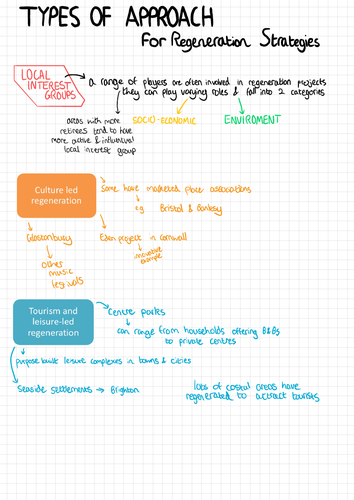 TYPES OF APPROACH
For Regeneration Strategies
LOCAL
INTEREST
GROUPS
a range of players are often involved in regeneration projects
they can play varying roles & fall into 2 categories
areas with more
retirees tend to have
more active & influencial
local interest group
SOCIO-ECONOMIC
ENVIROMENT
Culture led
regeneration
Some have marketed place associations
eg Bristol & Banksy
Glastonbury
other
music
festivals
Eden project in cornwall
innovative
example
Tourism and
leisure-led
regeneration
Centre parks
can range from households offering B&Bs
to private centres
purpose built leisure complexes in towns & cities
Seaside settlements → Brighton
lots of costal areas have
regenerated to attract tourists